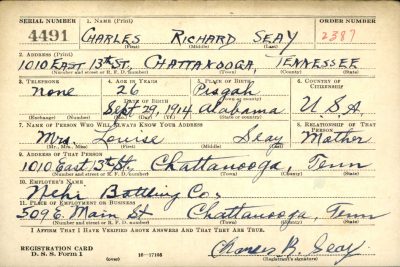 SERIAL NUMBER 1. NAME (Print) ORDER NUMBER
4491 CHARLES RICHARD SEAY 2387
(First) (Middle) (Last)
2. ADDRESS (Print)
1010 EAST 13th ST, CHATTANOOGA, TENNESSEE
(Number and street or R. F. D. number) (Town) (County) (State)
3. TELEPHONE 4. AGE IN YEARS 5. PLACE OF BIRTH 6. COUNTRY OF CITIZENSHIP
none 26 Pisgah
DATE OF BIRTH (Town or county)
Sept 29, 1914 Alabama U.S.A.
(Exchange) (Number) (Mo.) (Day) (Yr.) (State or country)
7. NAME OF PERSON WHO WILL ALWAYS KNOW YOUR ADDRESS 8. RELATIONSHIP OF THAT PERSON
Mrs. Louise Seay Mother
(Mr., Mrs., Miss) (First) (Middle) (Last)
9. ADDRESS OF THAT PERSON
1010 East 13th St, Chattanooga, Tenn
(Number and street or R. F. D. number) (Town) (County) (State)
10. EMPLOYER'S NAME
Nehi Bottling Co.
11. PLACE OF EMPLOYMENT OR BUSINESS
509 E. Main St Chattanooga, Tenn
(Number and street or R. F. D. number) (Town) (County) (State)
I AFFIRM THAT I HAVE VERIFIED ABOVE ANSWERS AND THAT THEY ARE TRUE.
REGISTRATION CARD
D. S. S. Form 1 (over) 16—17105 Charles R. Seay